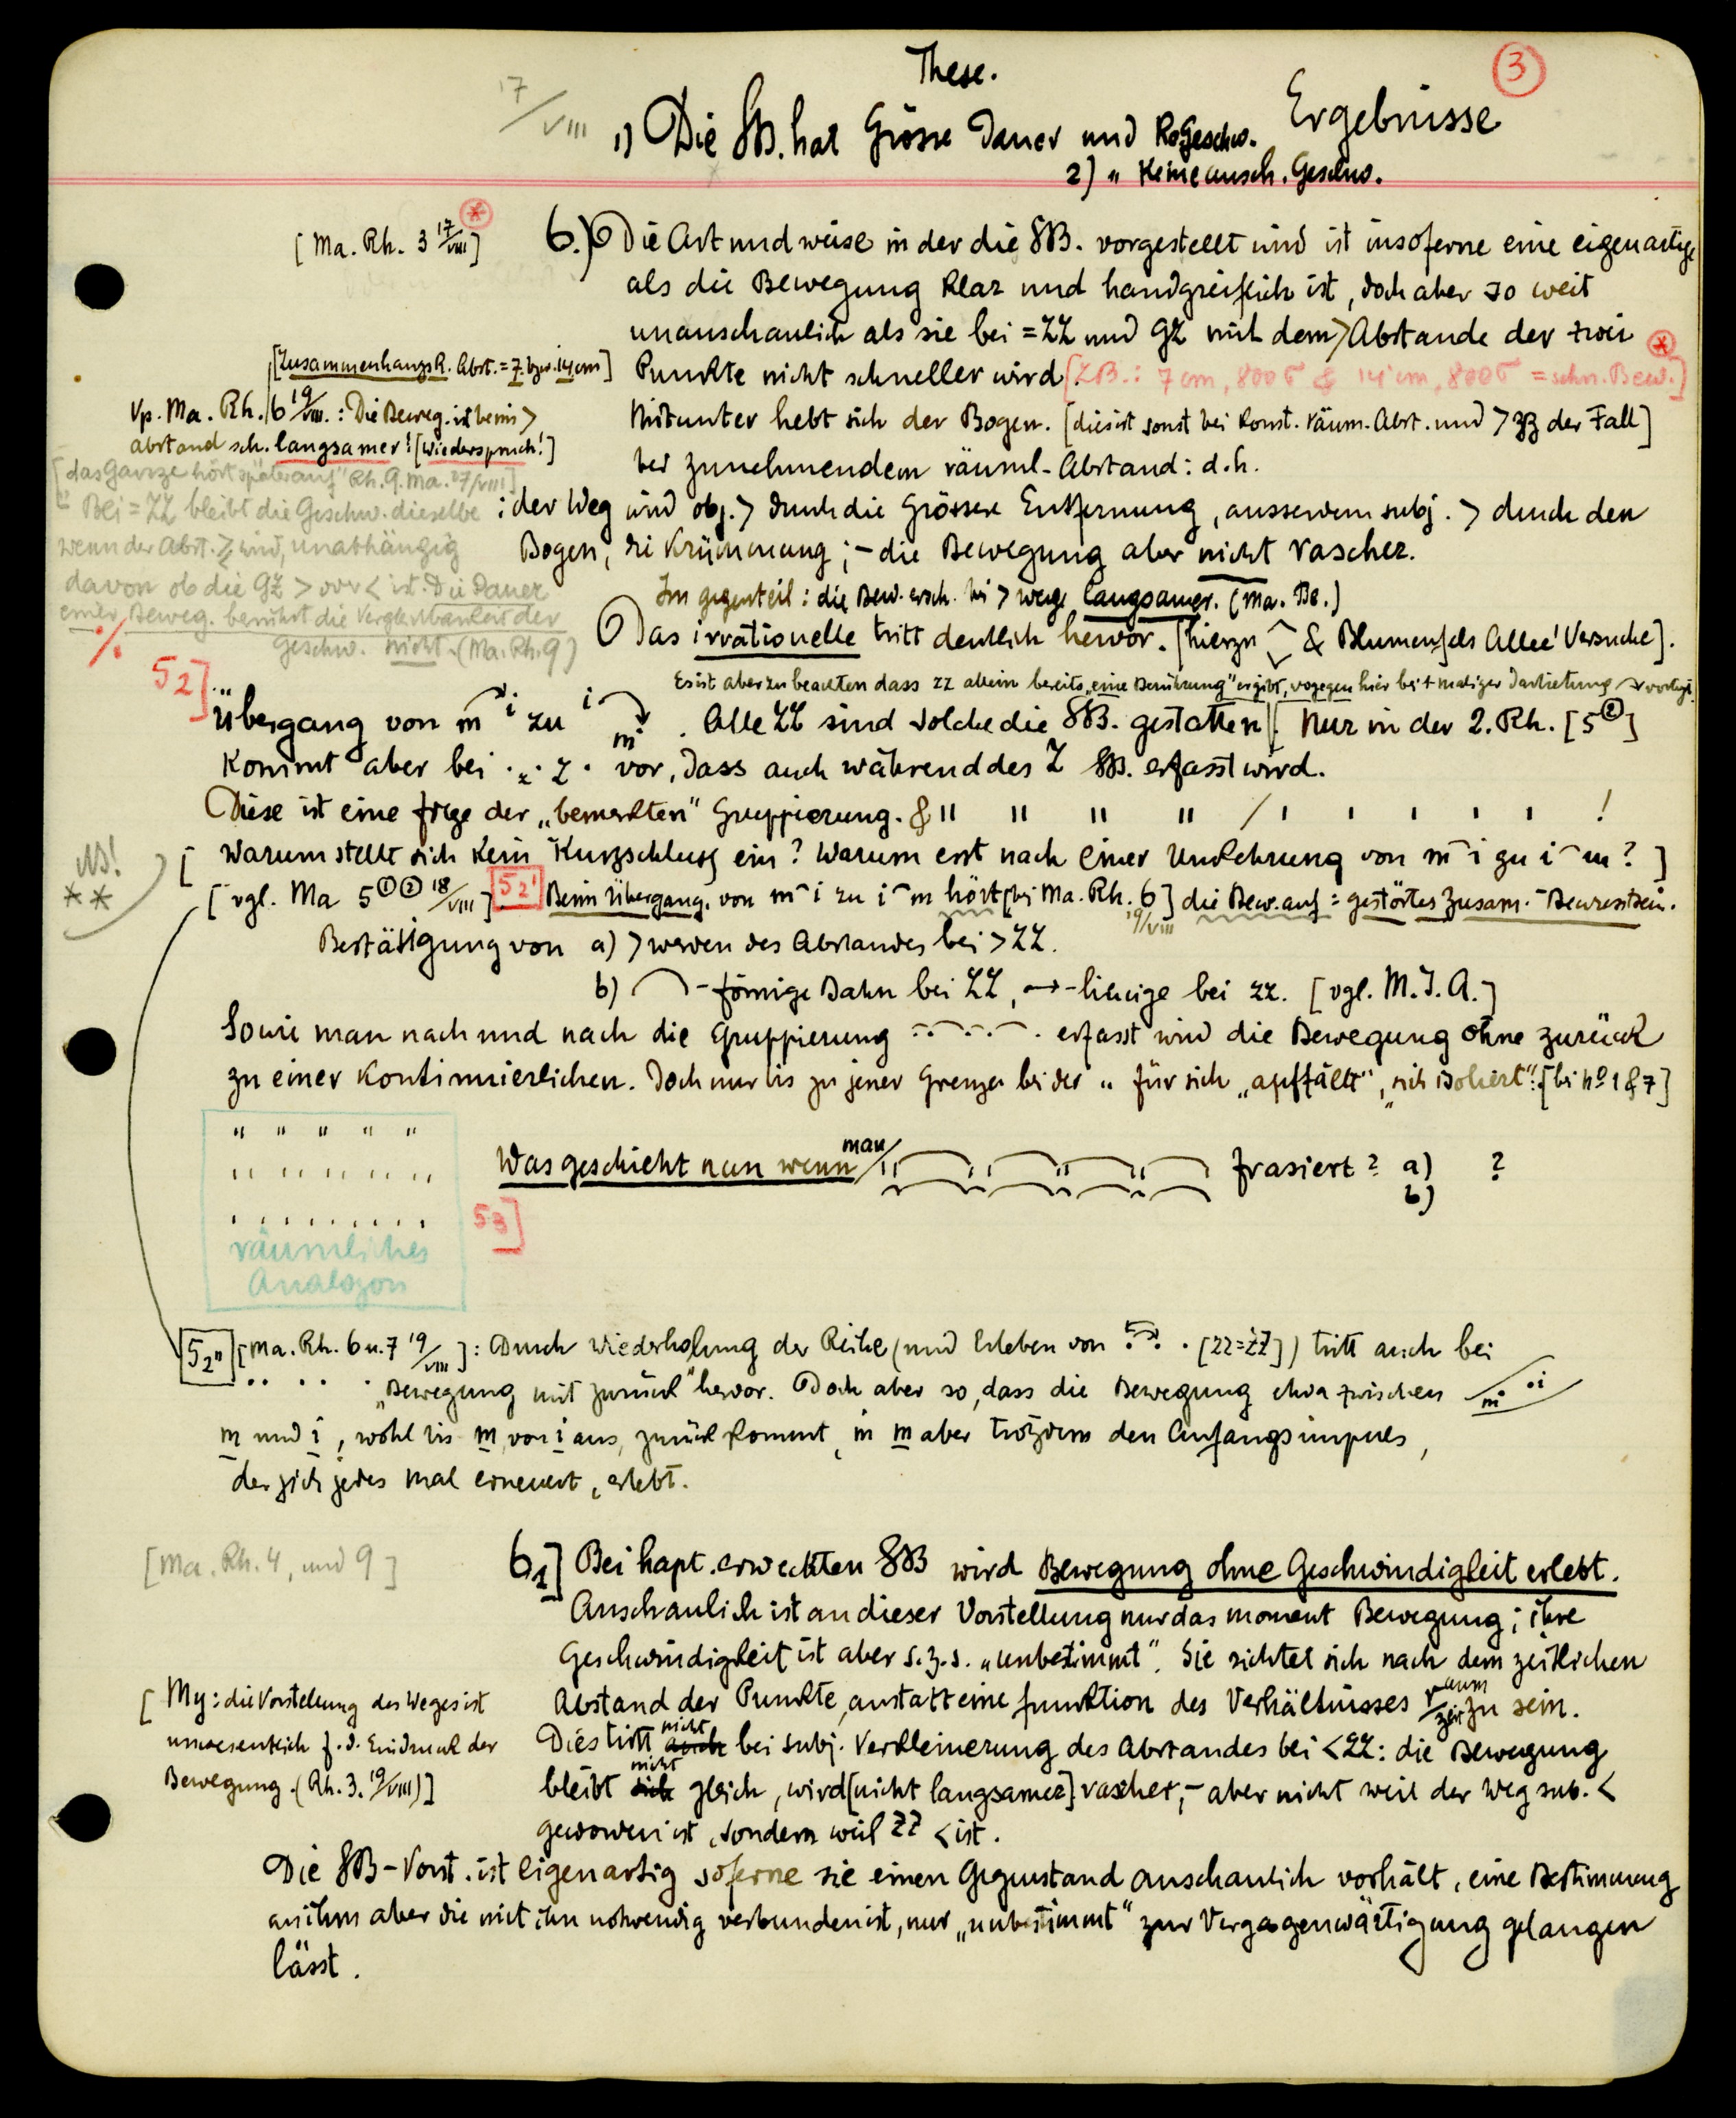 These.
3
17/VIII
1) Die SB. hat Grösse Dauer und Geschw.
Ergebnisse
2) " Keine ansch. Geschw.
[Ma. Rh. 3 17/VIII]
6.) Die Art und weise in der die SB. vorgestellt wird ist insoferne eine eigenartige
als die Bewegung klar und handgreiflich ist, doch aber so weit
unanschaulich als sie bei = ZZ und GZ mit dem > Abstande der zwei
Punkte nicht schneller wird [ZB.: 7 cm, 800 σ & 14 cm, 800 σ = schn. Bew.]
[Zusammenhangs R. Abst. = 7. bzw. 14 cm]
Vp. Ma. Rh. 6 19/VIII.: Die Beweg. ist beim >
abstand sch. langsamer! [Wiederspruch!]
["das Ganze hört später auf" Rh. 9. Ma. 27/VIII]
Mitunter hebt sich der Bogen. [dies ist sonst bei konst. räum. Abst. und > ZZ der Fall]
bei zunehmendem räuml. Abstand: d.h.
Bei = ZZ bleibt die Geschw. dieselbe
wenn der Abst. > wird, unabhängig
davon ob die GZ > oder < ist. Die Dauer
einer Beweg. berührt die Vergleichbarkeit der
Geschw. nicht. (Ma. Rh. 9)
: der Weg wird obj. > durch die Grössere Entfernung, ausserdem subj. > durch den
Bogen, die Krümmung; – die Bewegung aber nicht rascher.
Im gegenteil: die Bew. ersch. bei > wege langsamer. (Ma. Be.)
Das irrationelle tritt deutlich hervor. [hierzu & Blumenfels Allee' Versuche].
52]
Es ist aber zu beachten dass zz allein bereits "eine Berührung" ergibt, wogegen hier bei + maliger Darbietung vorliegt.
Übergang von m i zu i m. Alle ZZ sind solche die SB. gestatten [Nur in der 2. Rh. [5②]
Kommt aber bei . z . Z . vor, dass auch während des Z SB. erfasst wird.
Diese ist eine folge der „bemerkten" Gruppierung. & " " " " / ' ' ' ' ' !
NB!
**
[Warum stellt sich kein Kurzschluss ein? Warum erst nach einer Umkehrung von m i zu i m?]
[vgl. Ma 5①② 18/VIII] 52' Beim Übergang. von m i zu i m hört [bei Ma. Rh. 6 19/VIII] die Bew. auf: gestörtes Zusam.-Bewusstsein.
Bestätigung von a) > werden des Abstandes bei > ZZ.
b) -förmige Bahn bei ZZ, -linige bei zz. [vgl. M.I.A.]
Sowie man nach und nach die Gruppierung erfasst wird die Bewegung ohne zurück
zu einer kontinuierlichen. Doch nur bis zu jener Grenze bei der " für sich „auffällt", „sich isoliert". [bei No 1 & 7]
räumliches
Analogon
53]
Was geschieht nun wenn man frasiert? a) ?
b)
52" [Ma. Rh. 6 u. 7 19/VIII]: Durch Wiederholung der Reihe (und Erleben von [zz=ZZ]) tritt auch bei
„Bewegung mit zurück" hervor. Doch aber so, dass die Bewegung etwa zwischen m i
m und i, wohl bis m, von i aus, zurück kommt, in m aber trotzdem den Anfangsimpuls,
der sich jedes mal erneuert, erlebt.
[Ma. Rh. 4, und 9]
61] Bei hapt. erweckten SB wird Bewegung ohne Geschwindigkeit erlebt.
Anschaulich ist an dieser Vorstellung nur das moment Bewegung; ihre
Geschwindigkeit ist aber s.z.s. „unbestimmt". Sie richtet sich nach dem zeitlichen
Abstand der Punkte, anstatt eine funktion des Verhältnisses raum/zeit zu sein.
[My: die Vorstellung des Weges ist
unwesentlich f. d. Eindruck der
Bewegung. (Rh. 3. 19/VIII)]
Dies tritt nicht bei subj. Verkleinerung des Abstandes bei < ZZ: die Bewegung
bleibt nicht gleich, wird [nicht langsamer] rascher, – aber nicht weil der Weg sub. <
geworden ist, sondern weil ZZ < ist.
Die SB-Vorst. ist eigenartig soferne sie einen Gegenstand anschaulich vorhält, eine Bestimmung
an ihm aber die mit ihm notwendig verbunden ist, nur „unbestimmt" zur Vergegenwärtigung gelangen
lässt.